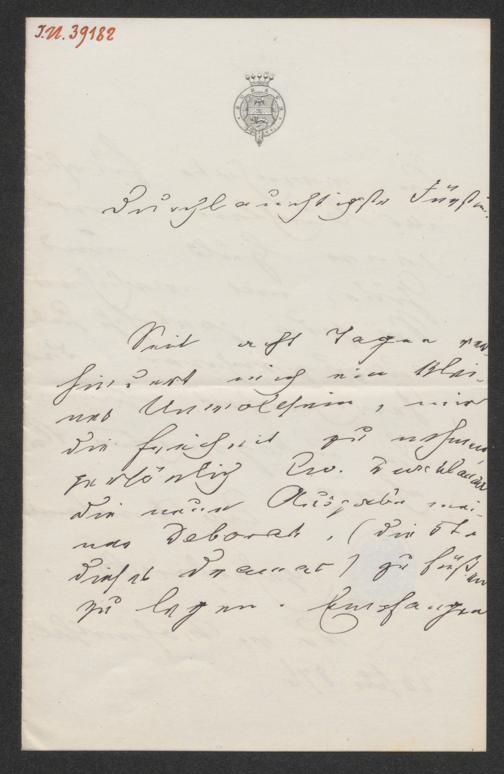 I.N. 39182
Durchlauchtigste Fürstin!
Seit acht Tagen ver-
hindert mich ein klei-
nes Unwohlsein, mir
die Freiheit zu nehmen
persönlich Ew. Durchlaucht
die neue Ausgabe mei-
ner Deborah, (die 5te
dieses Dramas) zu Füßen
zu legen. Empfangen